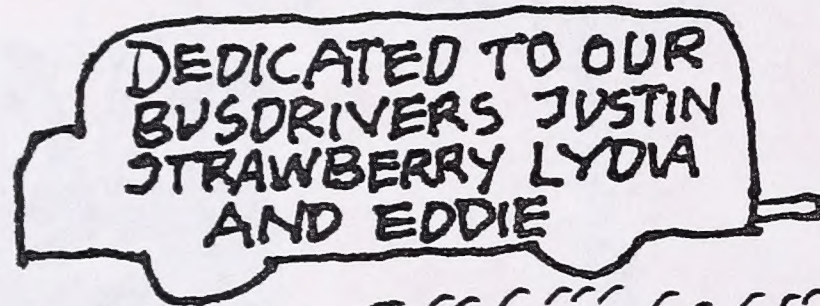 DEDICATED TO OUR
BUSDRIVERS JUSTIN
STRAWBERRY LYDIA
AND EDDIE